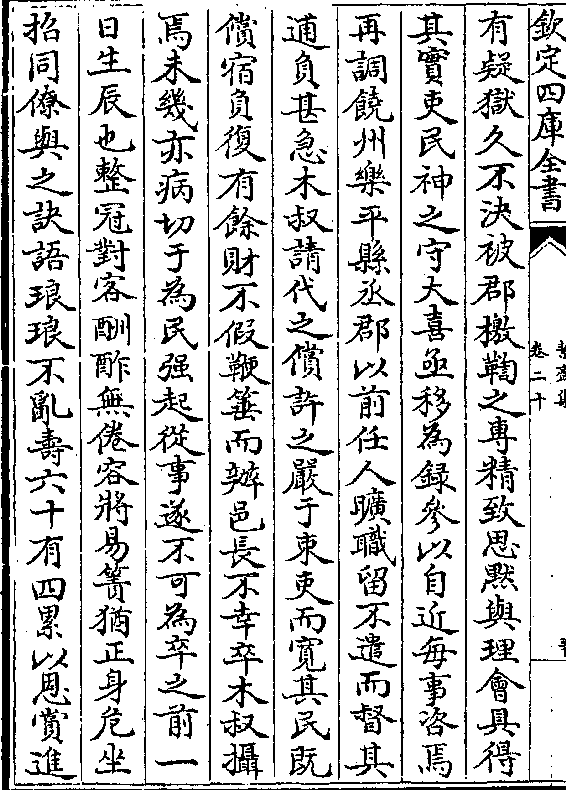 欽定四庫全書
卷二十
有疑獄久不決被郡檄鞫之專精致思黙與理會具得
其實吏民神之守大喜亟移為録參以自近每事咨焉
再調饒州樂平縣丞郡以前任人曠職留不遣而督其
逋負甚急木叔請代之償許之嚴于束吏而寛其民既
償宿負復有餘財不假鞭箠而辦邑長不幸卒木叔攝
焉未幾亦病切于為民强起從事遂不可為卒之前一
日生辰也整冠對客酬酢無倦容將易簀猶正身危坐
招同僚與之訣語琅琅不亂壽六十有四累以恩賞進